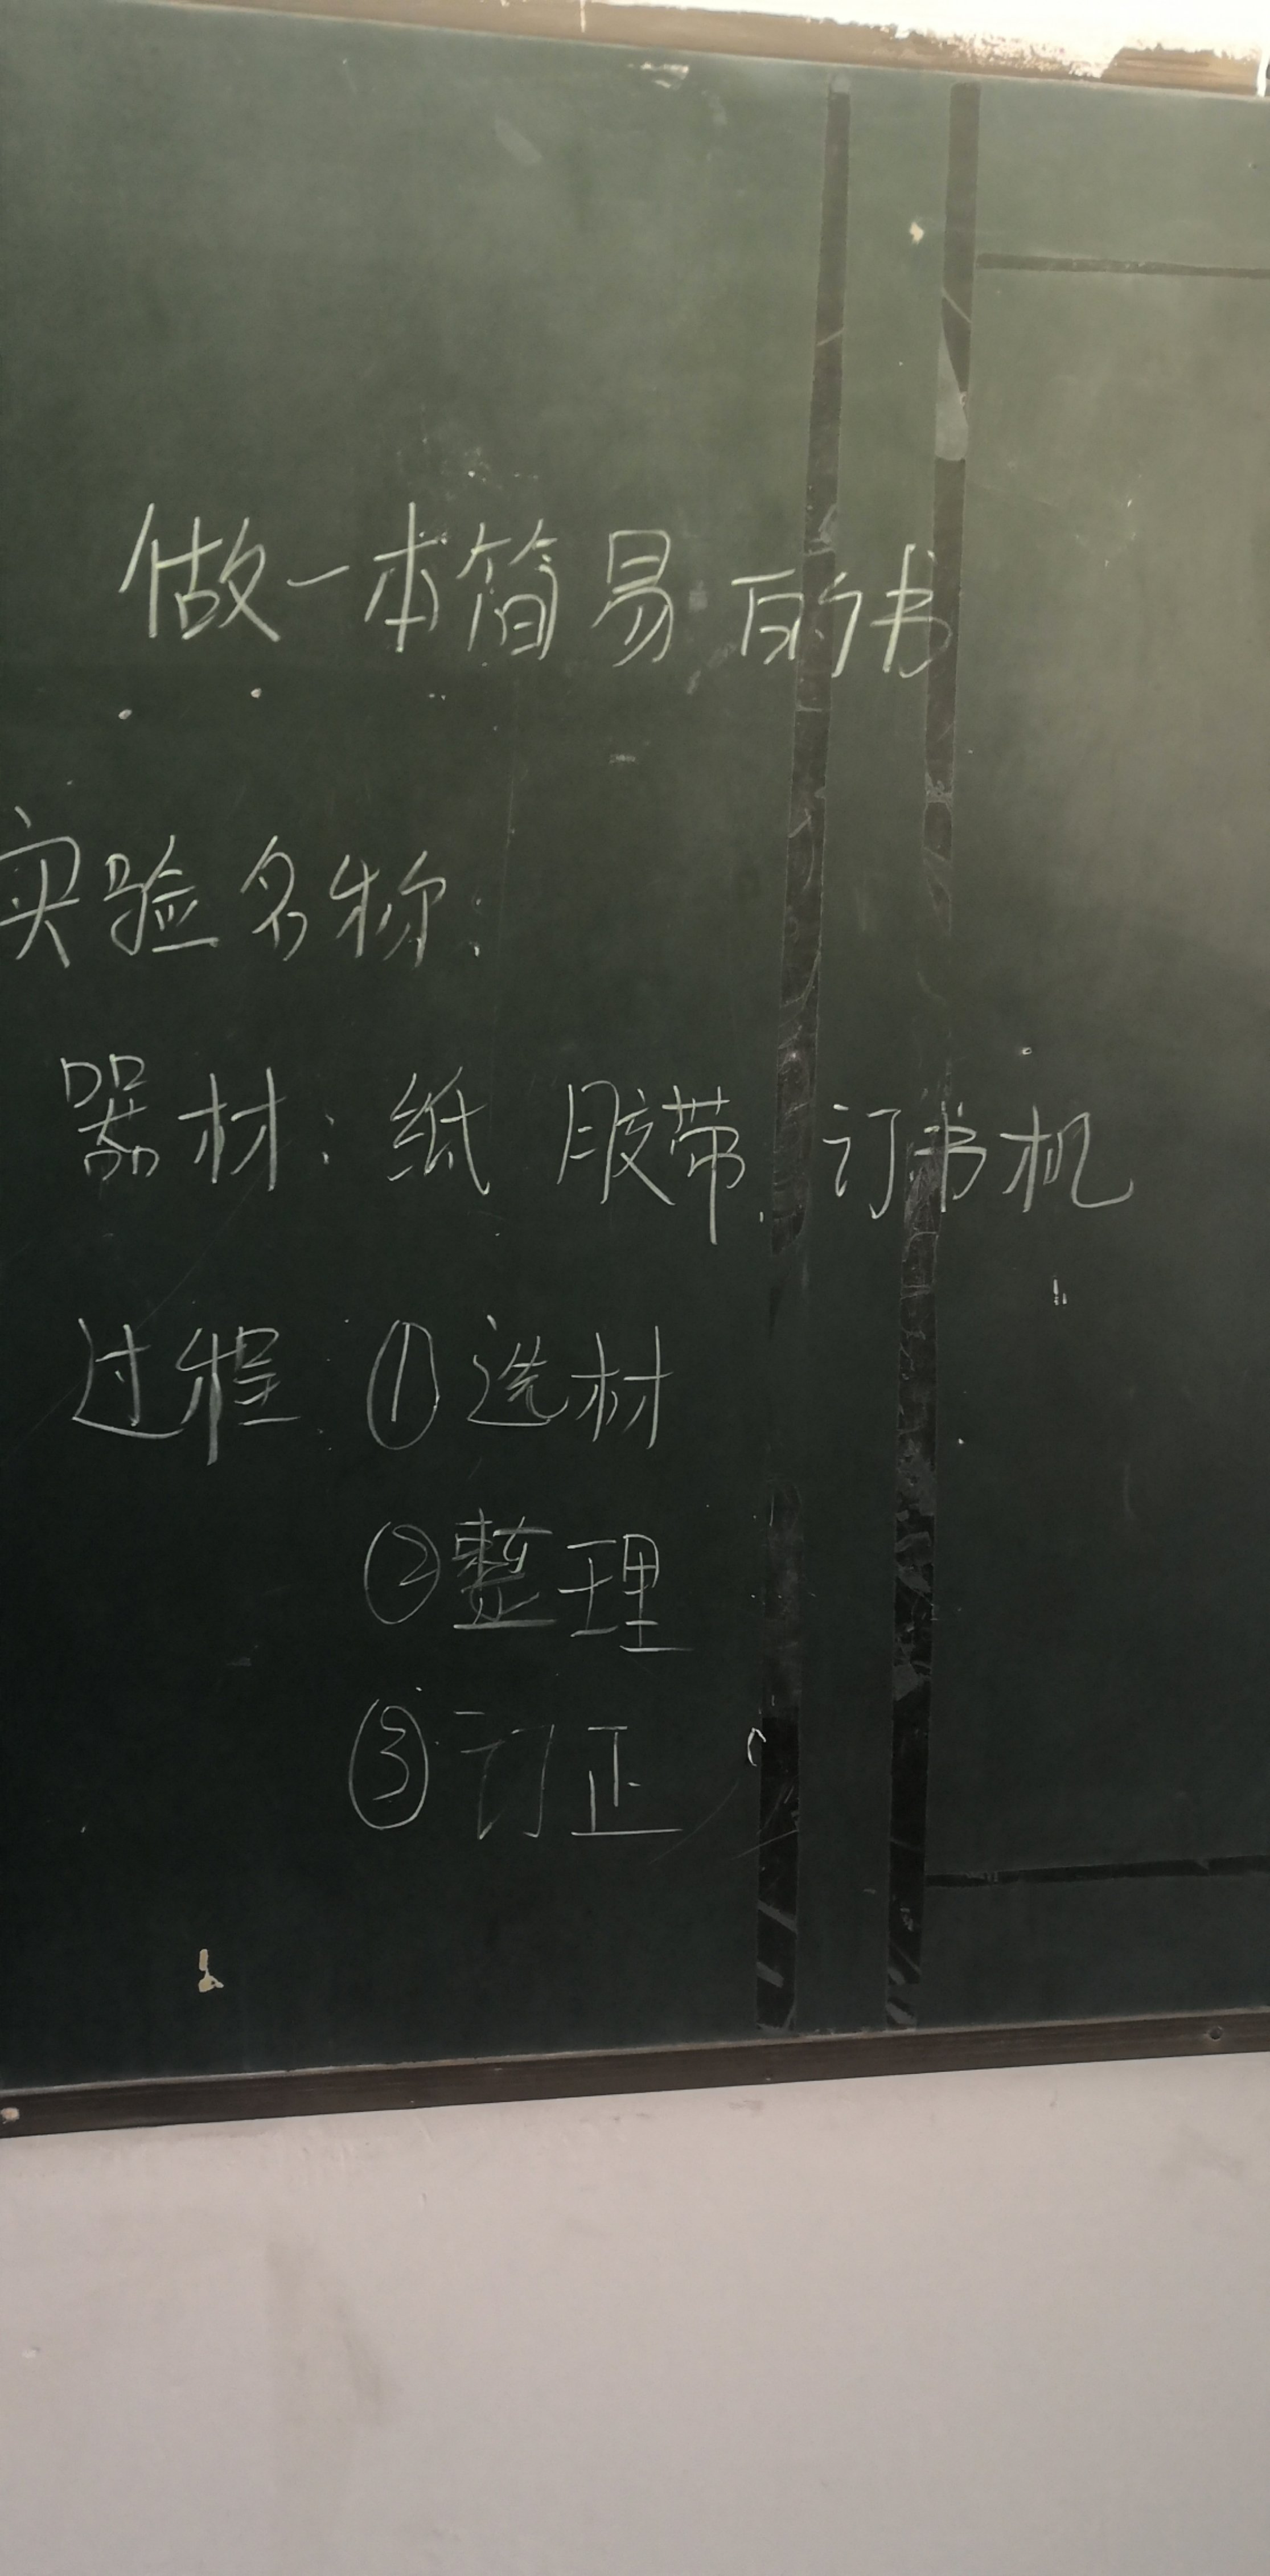 做一本简易的书
实验名称:
器材: 纸 胶带 订书机
过程: ①选材
②整理
③订正